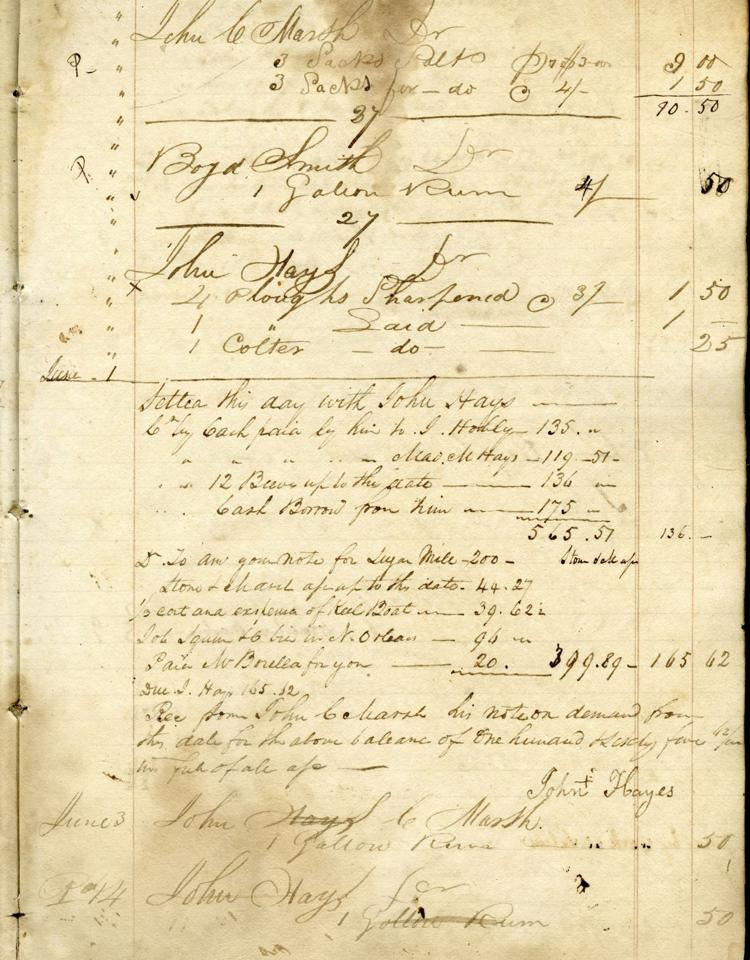 " John C Marsh Dr
P " 3 Sacks Salt 9 00
" 3 Sacks for - do @ 4/- 1 50
" 10 . 50
" 27
" Boyd Smith Dr
P " 1 Gallon Rum 4/ 50
" 27
" John Hays Dr
x " 4 Ploughs Sharpened @ 3/ 1 50
" 1 " Laid 1 -
" 1 Colter - do - 25
June 1
Settled this day with John Hays
Cr by Cash paid by him to J. 135 . "
" " " " Hays - 119 - 51 -
" " 12 up to the date 136 "
" . Cash Borrow from him 175 "
565 . 51 136 . -
Dr To am your note for Sugar Mill - 200 -
Store & Marsh up to this date . 44 . 27
cost and expense of Keel Boat 39 . 62½
in N. Orleans 96 "
Paid for you 20 . 399.89 - 165 62
Due J. Hays 165.
Rec from John C Marsh his note on demand from
this date for the above balance of One hundred & sixty five 62/100
in full of all
John + Hayes
June 3 John Hays C Marsh.
1 Gallon Rum " " 50
14 John Hays
1 Gallon Rum 50